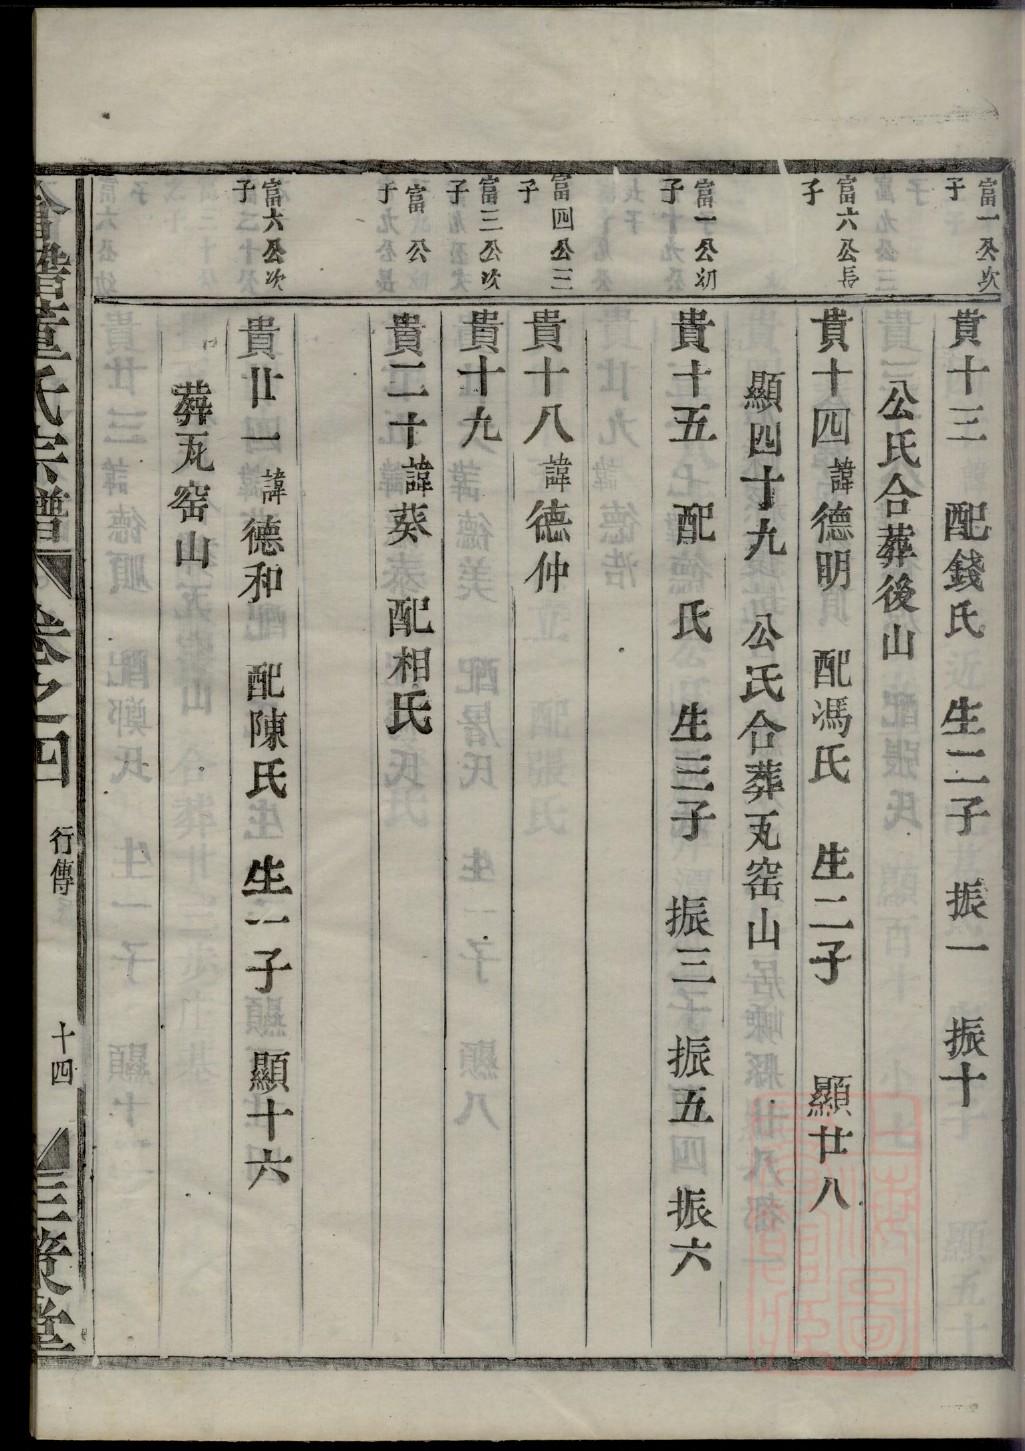 富一公次子
貴十三 配錢氏 生二子 振一 振十
公氏合葬後山
富六公長子
貴十四諱德明 配馮氏 生二子 顯廿八
顯四十九 公氏合葬瓦窑山
富一公初子
貴十五 配 氏 生三子 振三 振五 振六
富四公三子
貴十八諱德仲
富三公次子
貴十九
富 公子
貴二十諱葵 配相氏
富六公次子
貴廿一諱德和 配陳氏 生一子 顯十六
葬瓦窑山
董氏宗譜 卷之四 行傳 十四 三策堂